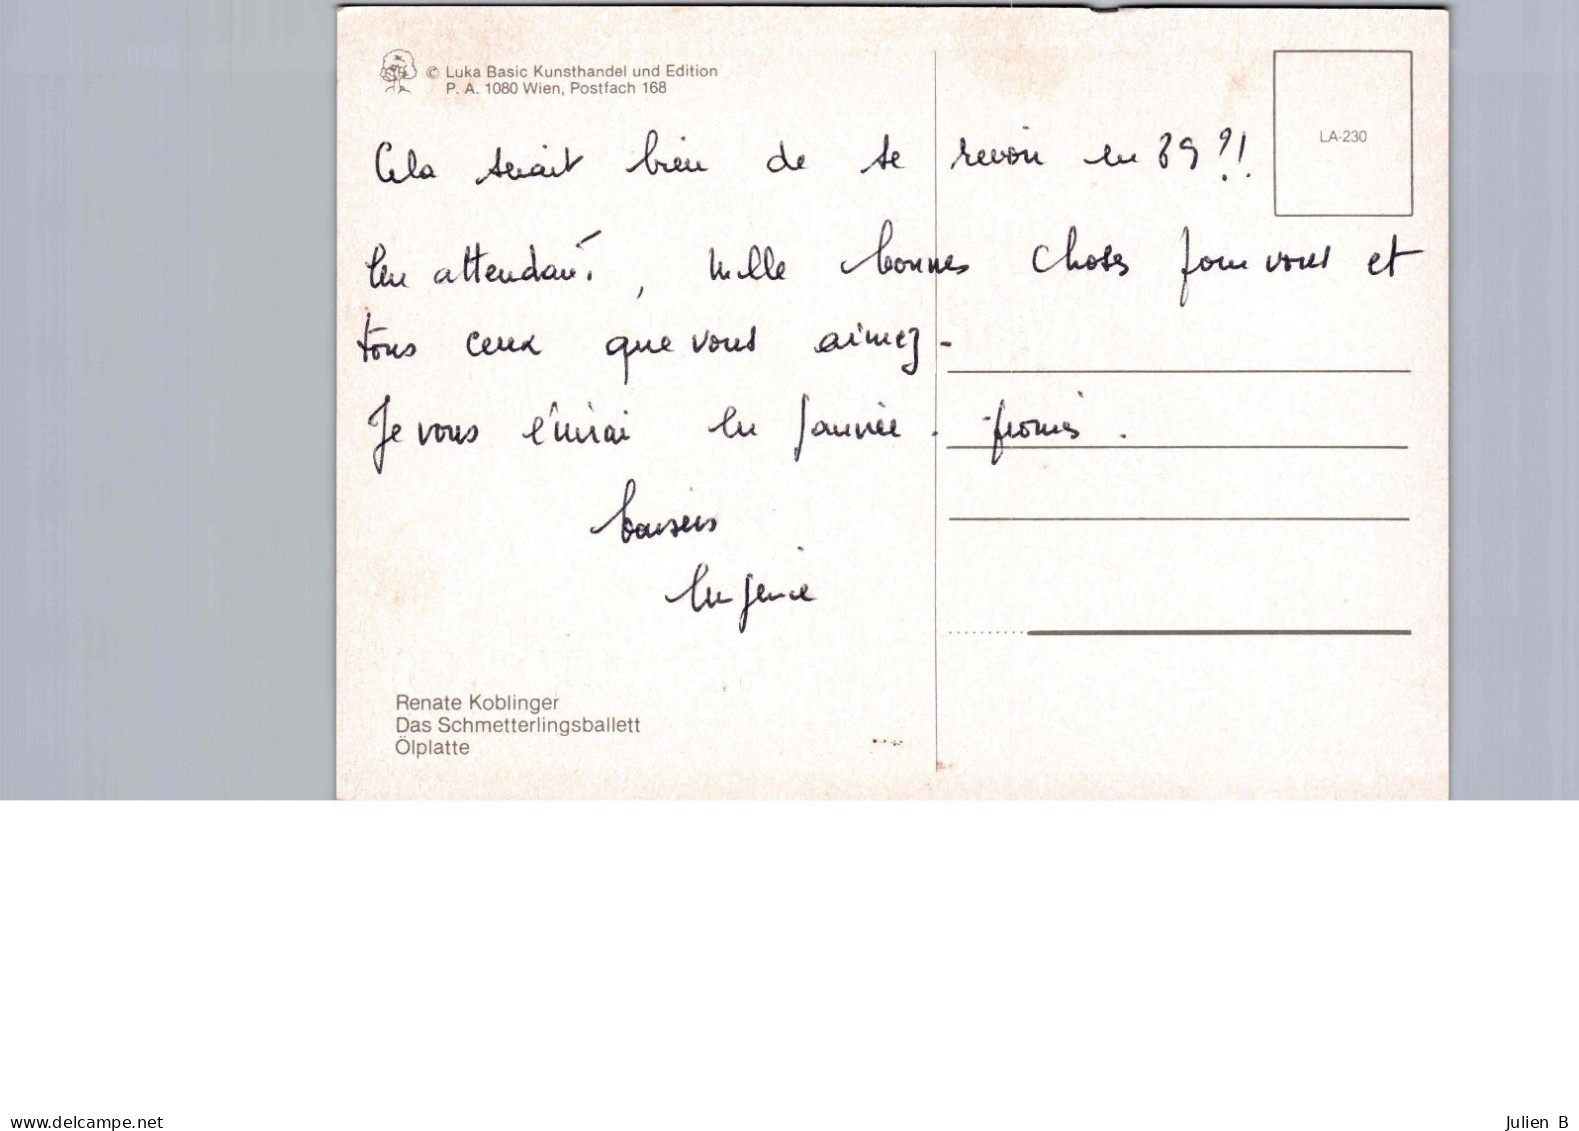 © Luka Basic Kunsthandel und Edition
P. A. 1080 Wien, Postfach 168
LA-230
Cela serait bien de se revoir en 89 ?!
En attendant, mille bonnes choses pour vous et
tous ceux que vous aimez -
Je vous écrirai en Janvier. promis.
baisers
Eugénie
Renate Koblinger
Das Schmetterlingsballett
Ölplatte
www.delcampe.net
Julien B